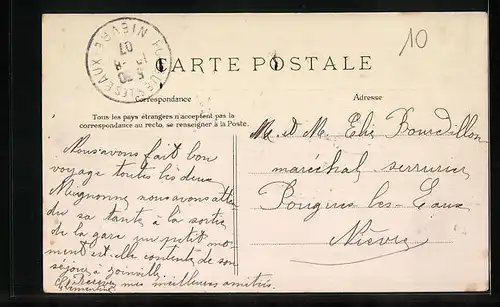 10
POUGUES-LES-EAUX NIÈVRE
5 10
07
CARTE POSTALE
Correspondance
Adresse
Tous les pays étrangers n'acceptent pas la
correspondance au recto, se renseigner à la Poste.
Nous avons fait bon
voyage toutes les deux
Mignonne nous avons atten
du sa tante à la sortie
de la gare un petit mo
ment est elle contente de son
séjour à Joinville
Recevez mes meilleures amitiés
Clémentine
M. et M. Elie Bourdillon
maréchal serrurier
Pougues les Eaux
Nièvre